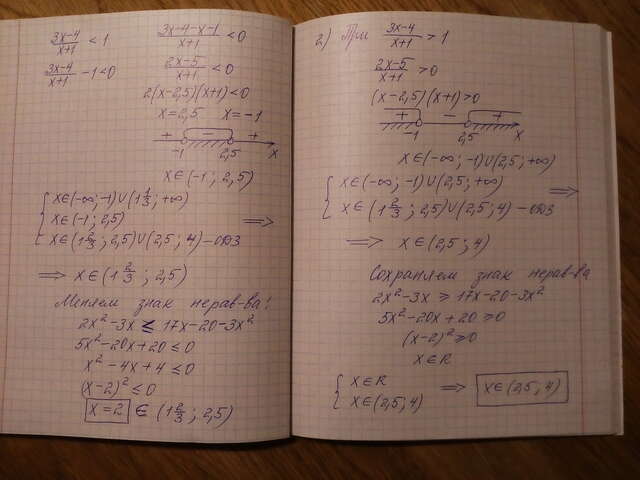 (3x-4)/(x+1) < 1
(3x-4-x-1)/(x+1) < 0
(3x-4)/(x+1) -1<0
(2x-5)/(x+1) < 0
2(x-2,5)(x+1)<0
x=2,5 x=-1
+ - +
-1 2,5 x
x∈(-1; 2,5)
{ x∈(-∞;-1)∪(1 1/3; +∞)
x∈(-1; 2,5) ⟹
x∈(1 2/3; 2,5)∪(2,5; 4) - ОДЗ
⟹ x∈(1 2/3; 2,5)
Меняем знак нерав-ва:
2x²-3x ≤ 17x-20-3x²
5x²-20x+20 ≤ 0
x²-4x+4 ≤ 0
(x-2)² ≤ 0
x=2 ∈ (1 2/3; 2,5)
2) При (3x-4)/(x+1) > 1
(2x-5)/(x+1) > 0
(x-2,5)(x+1)>0
+ - +
-1 2,5 x
x∈(-∞; -1)∪(2,5; +∞)
{ x∈(-∞; -1)∪(2,5; +∞) ⟹
x∈(1 2/3; 2,5)∪(2,5; 4) - ОДЗ
⟹ x∈(2,5; 4)
Сохраняем знак нерав-ва
2x²-3x ≥ 17x-20-3x²
5x²-20x+20 ≥ 0
(x-2)² ≥ 0
x∈R
{ x∈R
x∈(2,5; 4) ⟹ x∈(2,5; 4)